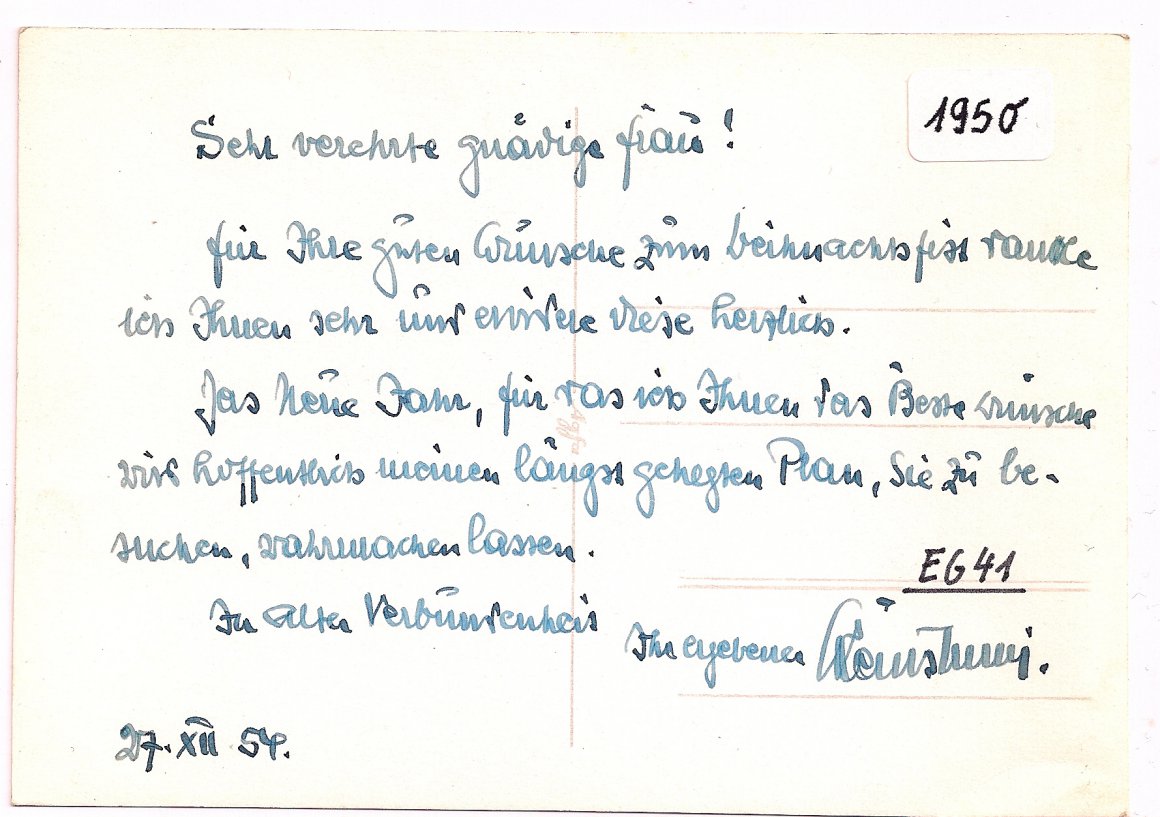 1950
Sehr verehrte gnädige Frau!
für Ihre guten Wünsche zum Weihnachtsfest danke
ich Ihnen sehr und erwidere diese herzlich.
Das Neue Jahr, für das ich Ihnen das Beste wünsche
wird hoffentlich meinen längst gehegten Plan, Sie zu be-
suchen, wahrmachen lassen.
In alter Verbundenheit
Ihr ergebener
EG41
27. XII 54.
Agfa